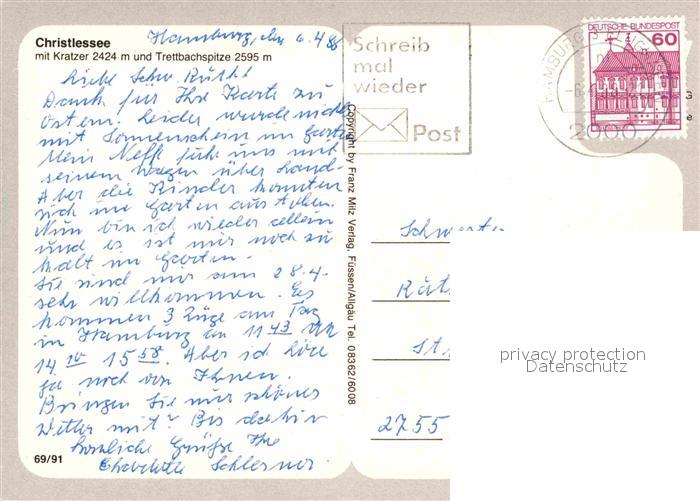 Christlessee
mit Kratzer 2424 m und Trettbachspitze 2595 m
Hamburg, den 6.4.88
Liebe Schw. Käthe!
Dank für Ihre Karte zu
Ostern. Leider wurde nichts
mit Sonnenschein im Garten
Mein Neffe fuhr uns mit
seinem Wagen über Land.
Aber die Kinder konnten
sich im Garten
Nun bin ich wieder allein
und es ist mir noch zu
kalt im Garten.
Sie sind mir am 28.4.
sehr willkommen. Es
kommen 3 Züge am Tag
in Hamburg an 11 43
14 10 15 58. Aber ich höre
ja noch von Ihnen.
Bringen Sie nur schönes
Wetter mit! Bis dahin
herzliche Grüße Ihre
Charlotte
69/91
Copyright by Franz Milz Verlag, Füssen/Allgäu Tel. 08362/6008
Schreib
mal
wieder
Post
DEUTSCHE BUNDESPOST
60
HAMBURG
2000
Schwester
2755
privacy protection
Datenschutz